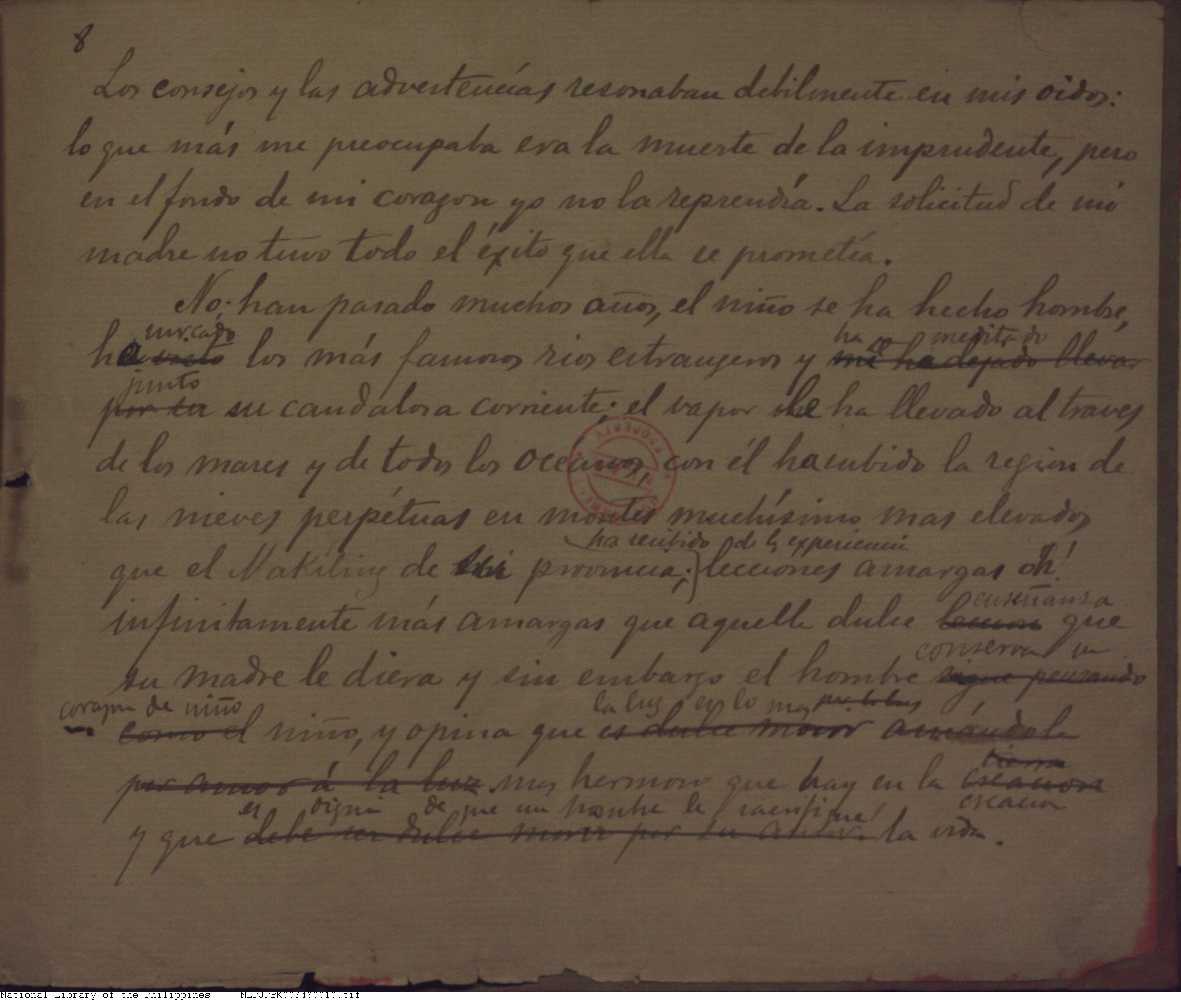 8
Los consejos y las advertencias resonaban debilmente en mis oidos:
lo que más me preocupaba era la muerte de la imprudente, pero
en el fondo de mi corazon yo no la reprendía. La solicitud de mi
madre no tuvo todo el éxito que ella se prometía.
No: han pasado muchos años, el niño se ha hecho hombre,
surcado ha meditado
ha visto los más famosos rios estrangeros y me ha dejado llevar
junto
por su su caudalosa corriente; el vapor le ha llevado al traves
de los mares y de todos los oceanos, con él ha subido la region de
las nieves perpétuas en montes muchísimo mas elevados
ha recibido de la experiencia
que el Makiling de su provincia; lecciones amargas oh!
enseñanza
infinitamente más amargas que aquella dulce leccion que
conserva un
su madre le diera y sin embargo el hombre sigue pensando
corazon de niño la luz es lo mas
como el niño, y opina que es dulce morir amándola
tierra
por amor á la luz mas hermoso que hay en la creacion
es digna de que un hombre le sacrifique creacion
y que debe ser dulce morir por su amor la vida.
National Library of the Philippines